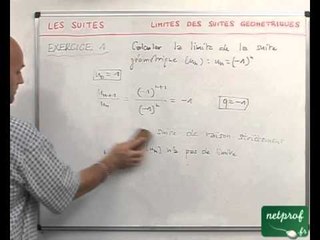 LES SUITES LIMITES DES SUITES GEOMETRIQUES
EXERCICE 1 Calculer la limite de la suite
géométrique (un) : un = (-1)^n
un+1 / un = (-1)^n+1 / (-1)^n = -1 q = -1
suite de raison strictement
n'a pas de limite
netprof.fr